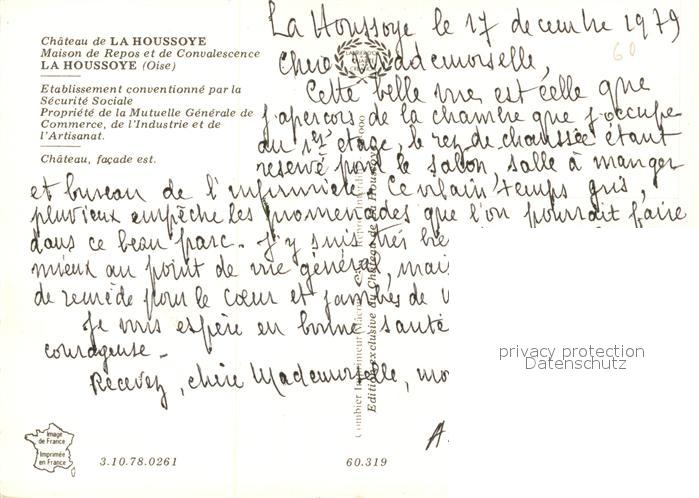 La Houssoye le 17 decembre 1979
60
Château de LA HOUSSOYE
Maison de Repos et de Convalescence
LA HOUSSOYE (Oise)
Etablissement conventionné par la
Sécurité Sociale
Propriété de la Mutuelle Générale de
Commerce, de l'Industrie et de
l'Artisanat.
Château, façade est.
Chère Mademoiselle,
Cette belle vue est celle que
j'aperçois de la chambre que j'occupe
au 1er étage, le rez de chaussée étant
réservé pour le salon, salle à manger
et bureau de l'infirmière. Ce vilain temps gris,
pluvieux empêche les promenades que l'on pourrait faire
dans ce beau parc. J'y suis très
mieux au point de vue général, mais
de remède pour le cœur et jambes de
Je vous espère en bonne santé
courageuse.
Recevez, chère Mademoiselle,
A.
Combier Imprimeur Mâcon
Edition exclusive du Château de La Houssoye
privacy protection
Datenschutz
Image
de France
Imprimée
en France
3.10.78.0261
60.319